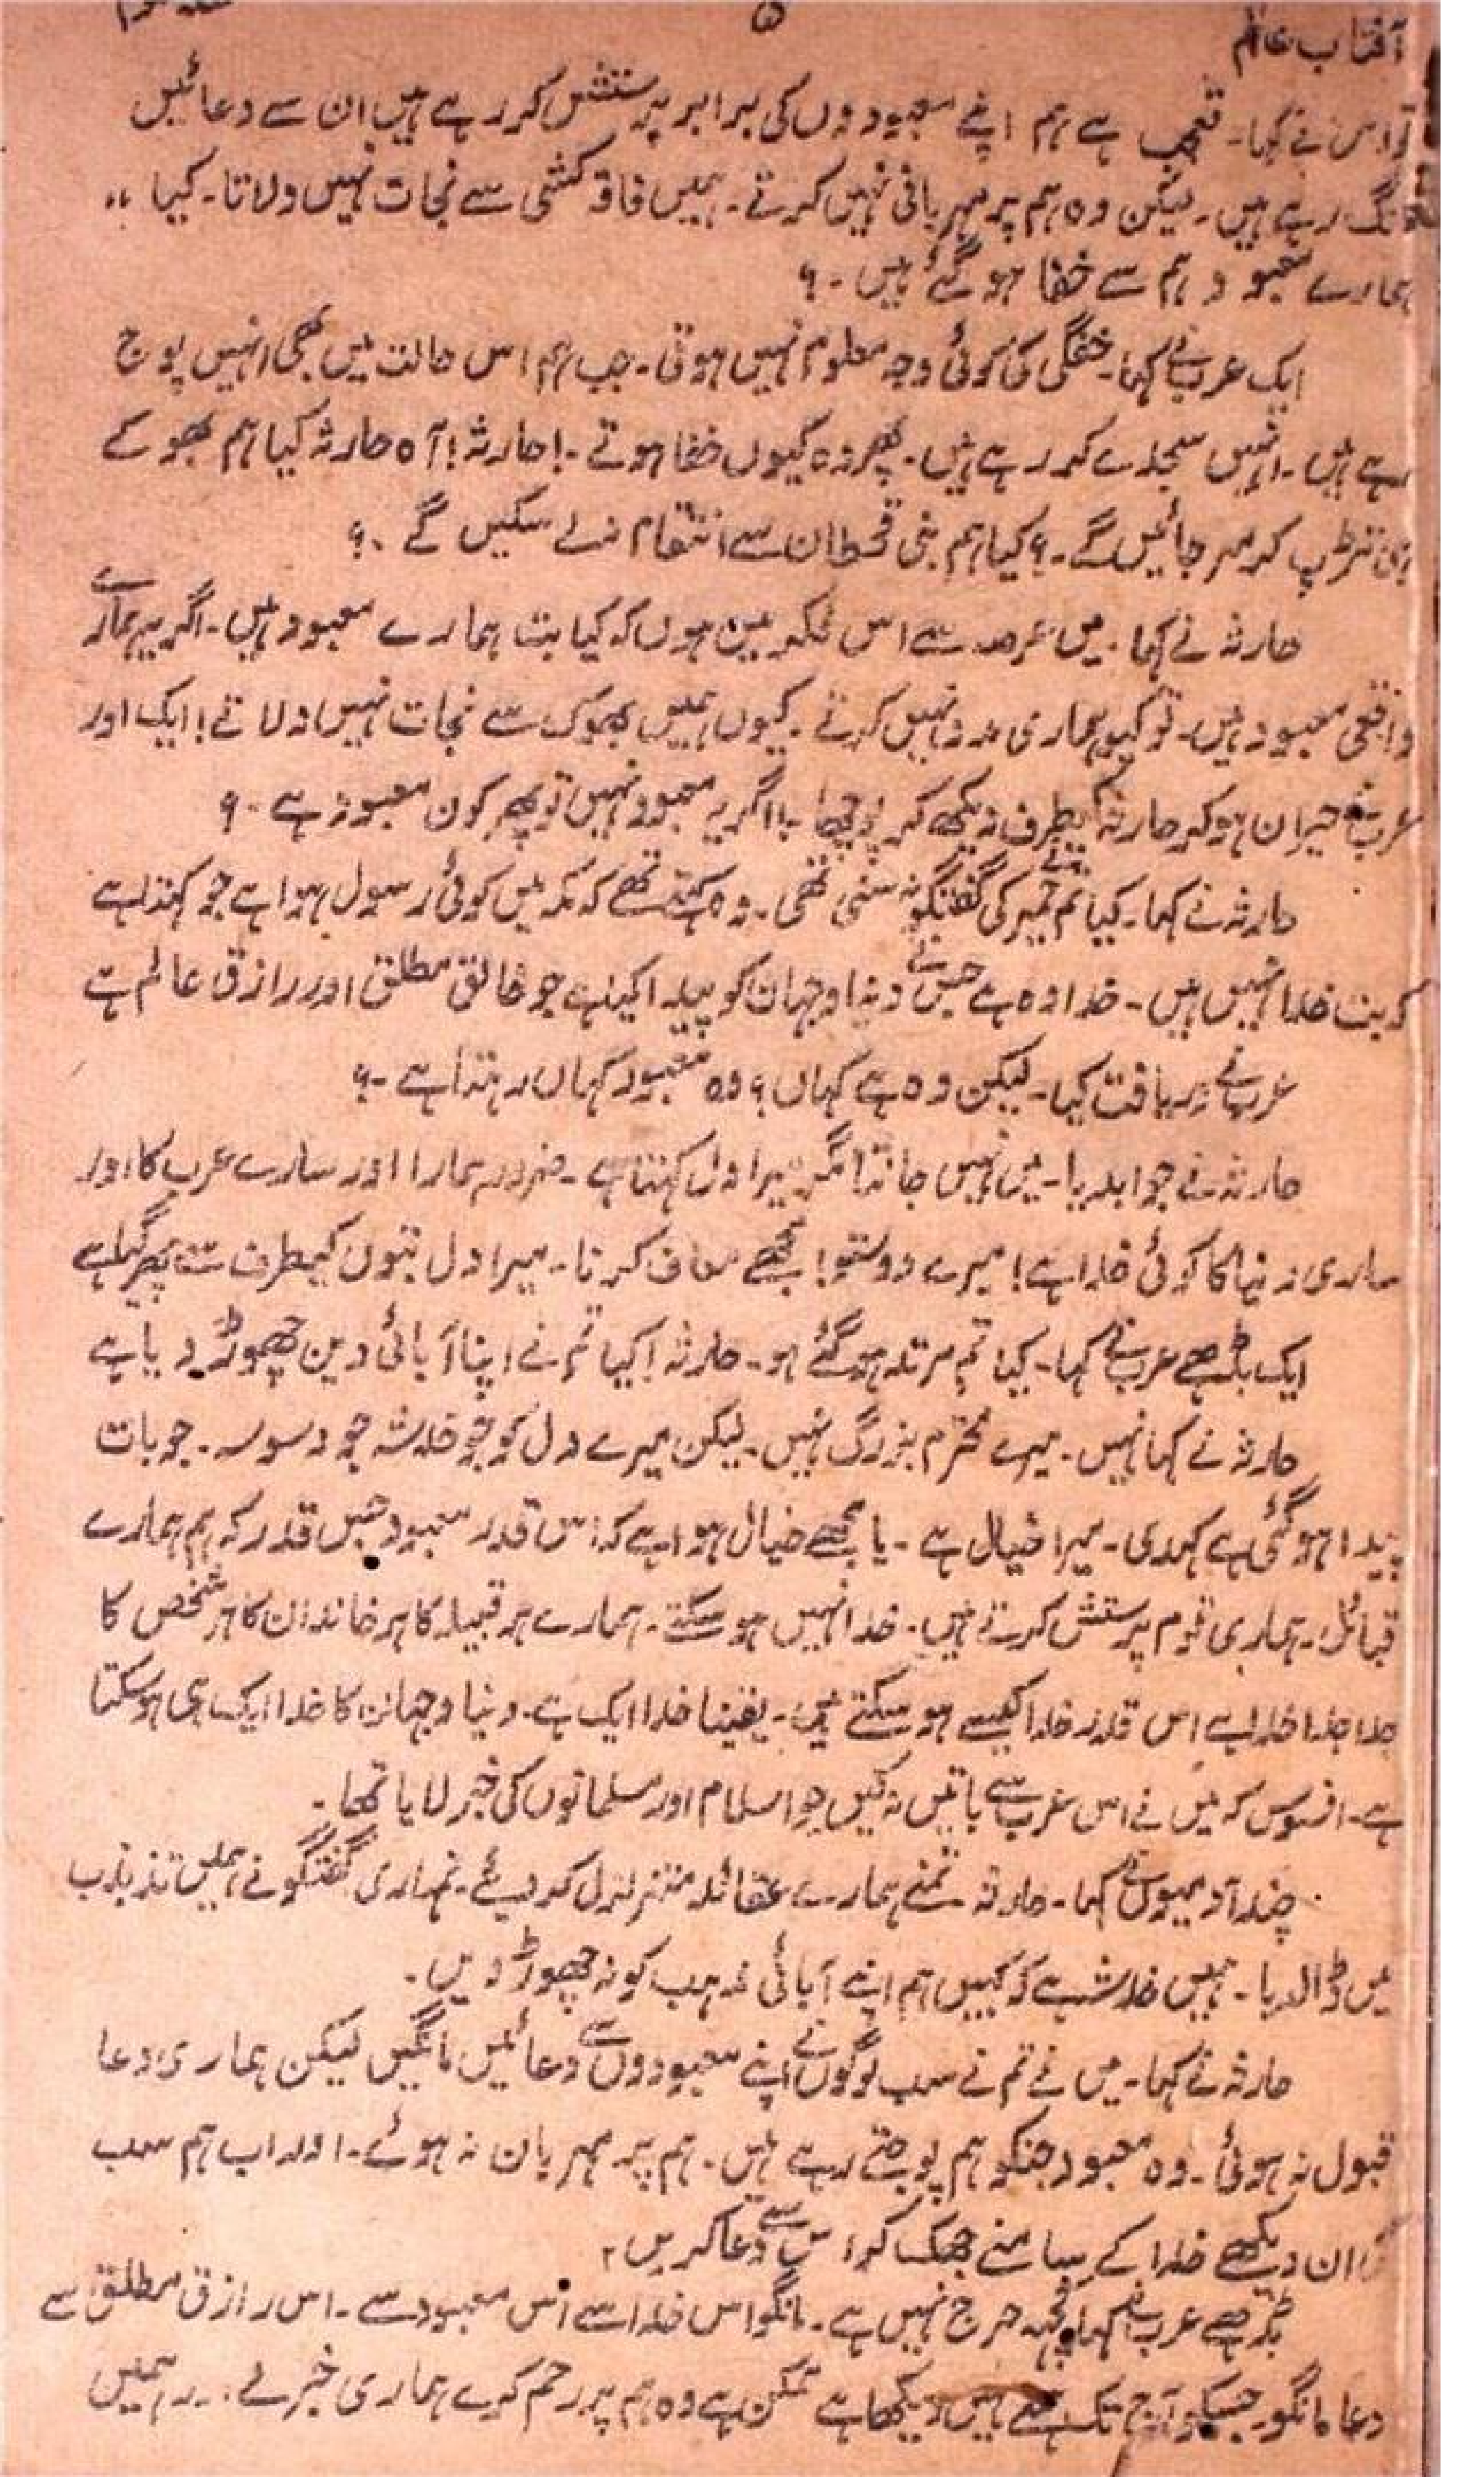 آفتاب عالم
۵
تو اس نے کہا۔ تعجب ہے ہم اپنے معبودوں کی برابر پرستش کر رہے ہیں ان سے دعائیں
مانگ رہے ہیں۔ لیکن وہ ہم پر مہربانی نہیں کرتے۔ ہمیں فاقہ کشی سے نجات نہیں دلاتا۔ کیا
ہمارے معبود ہم سے خفا ہو گئے ہیں۔؟
ایک عرب نے کہا۔ خفگی کی کوئی وجہ معلوم نہیں ہوتی۔ جب ہم اس حالت میں بھی انہیں پوج
رہے ہیں۔ انہیں سجدے کر رہے ہیں۔ پھر وہ کیوں خفا ہوتے۔! حارثہ! آہ حارثہ کیا ہم بھوکے
ہی تڑپ کر مر جائیں گے۔؟ کیا ہم بنی قحطان سے انتقام نہ لے سکیں گے۔؟
حارثہ نے کہا۔ میں عرصہ سے اس فکر میں ہوں کہ کیا بت ہمارے معبود ہیں۔ اگر یہ ہمارے
واقعی معبود ہیں۔ تو کیوں ہماری مدد نہیں کرتے۔ کیوں ہمیں بھوک سے نجات نہیں دلاتے! ایک اور
عرب نے حیران ہو کر حارثہ کیطرف دیکھ کر پوچھا۔ اگر یہ معبود نہیں تو پھر کون معبود ہے۔؟
حارثہ نے کہا۔ کیا تم نے حمیر کی گفتگو نہ سنی تھی۔ وہ کہتے تھے کہ مکہ میں کوئی رسول ہوا ہے جو کہتا ہے
کہ بت خدا نہیں ہیں۔ خدا وہ ہے جس نے دنیا و جہان کو پیدا کیا ہے جو خالق مطلق اور رازق عالم ہے
عرب نے دریافت کیا۔ لیکن وہ ہے کہاں؟ وہ معبود کہاں رہتا ہے۔؟
حارثہ نے جوابدیا۔ میں نہیں جانتا مگر میرا دل کہتا ہے۔ ضرور ہمارا اور سارے عرب کا اور
ساری دنیا کا کوئی خدا ہے! میرے دوستو! مجھے معاف کرنا۔ میرا دل بتوں کیطرف سے پھر گیا ہے
ایک بڈھے عرب نے کہا۔ کیا تم مرتد ہو گئے ہو۔ حارثہ! کیا تم نے اپنا آبائی دین چھوڑ دیا ہے
حارثہ نے کہا نہیں۔ میرے محترم بزرگ نہیں۔ لیکن میرے دل کو جو خدشہ جو وسوسہ۔ جو بات
پیدا ہو گئی ہے کہدی۔ میرا خیال ہے۔ یا مجھے خیال ہوا ہے کہ اس قدر معبود جس قدر کہ ہم ہمارے
قبائل۔ ہماری قوم پرستش کرتے ہیں۔ خدا نہیں ہو سکتے۔ ہمارے ہر قبیلہ کا ہر خاندان کا ہر شخص کا
جدا جدا خدا ہے اس قدر خدا کیسے ہو سکتے ہیں۔ یقینا خدا ایک ہے۔ دنیا و جہان کا خدا ایک ہی ہو سکتا
ہے۔ افسوس کہ میں نے اس عرب سے باتیں نہ کیں جو اسلام اور مسلمانوں کی خبر لایا تھا۔
چند آدمیوں نے کہا۔ حارثہ تمنے ہمارے عقائد متزلزل کر دیئے۔ تمہاری گفتگو نے ہمیں تذبذب
میں ڈالدیا۔ ہمیں خدشہ ہے کہ کہیں ہم اپنے آبائی مذہب کو نہ چھوڑ دیں۔
حارثہ نے کہا۔ میں نے تم نے سب لوگوں نے اپنے معبودوں سے دعائیں مانگیں لیکن ہماری دعا
قبول نہ ہوئی۔ وہ معبود جنکو ہم پوجتے رہے ہیں۔ ہم پر مہربان نہ ہوئے۔ اور اب ہم سب
ان دیکھے خدا کے سامنے جھک کر اس سے دعا کریں۔
بڈھے عرب نے کہا کچھ حرج نہیں ہے۔ مانگو اس خدا سے اس معبود سے۔ اس رازق مطلق سے
دعا مانگو۔ جسکو آج تک نہیں دیکھا ہے ممکن ہے وہ ہم پر رحم کرے ہماری خبر لے۔ ہمیں